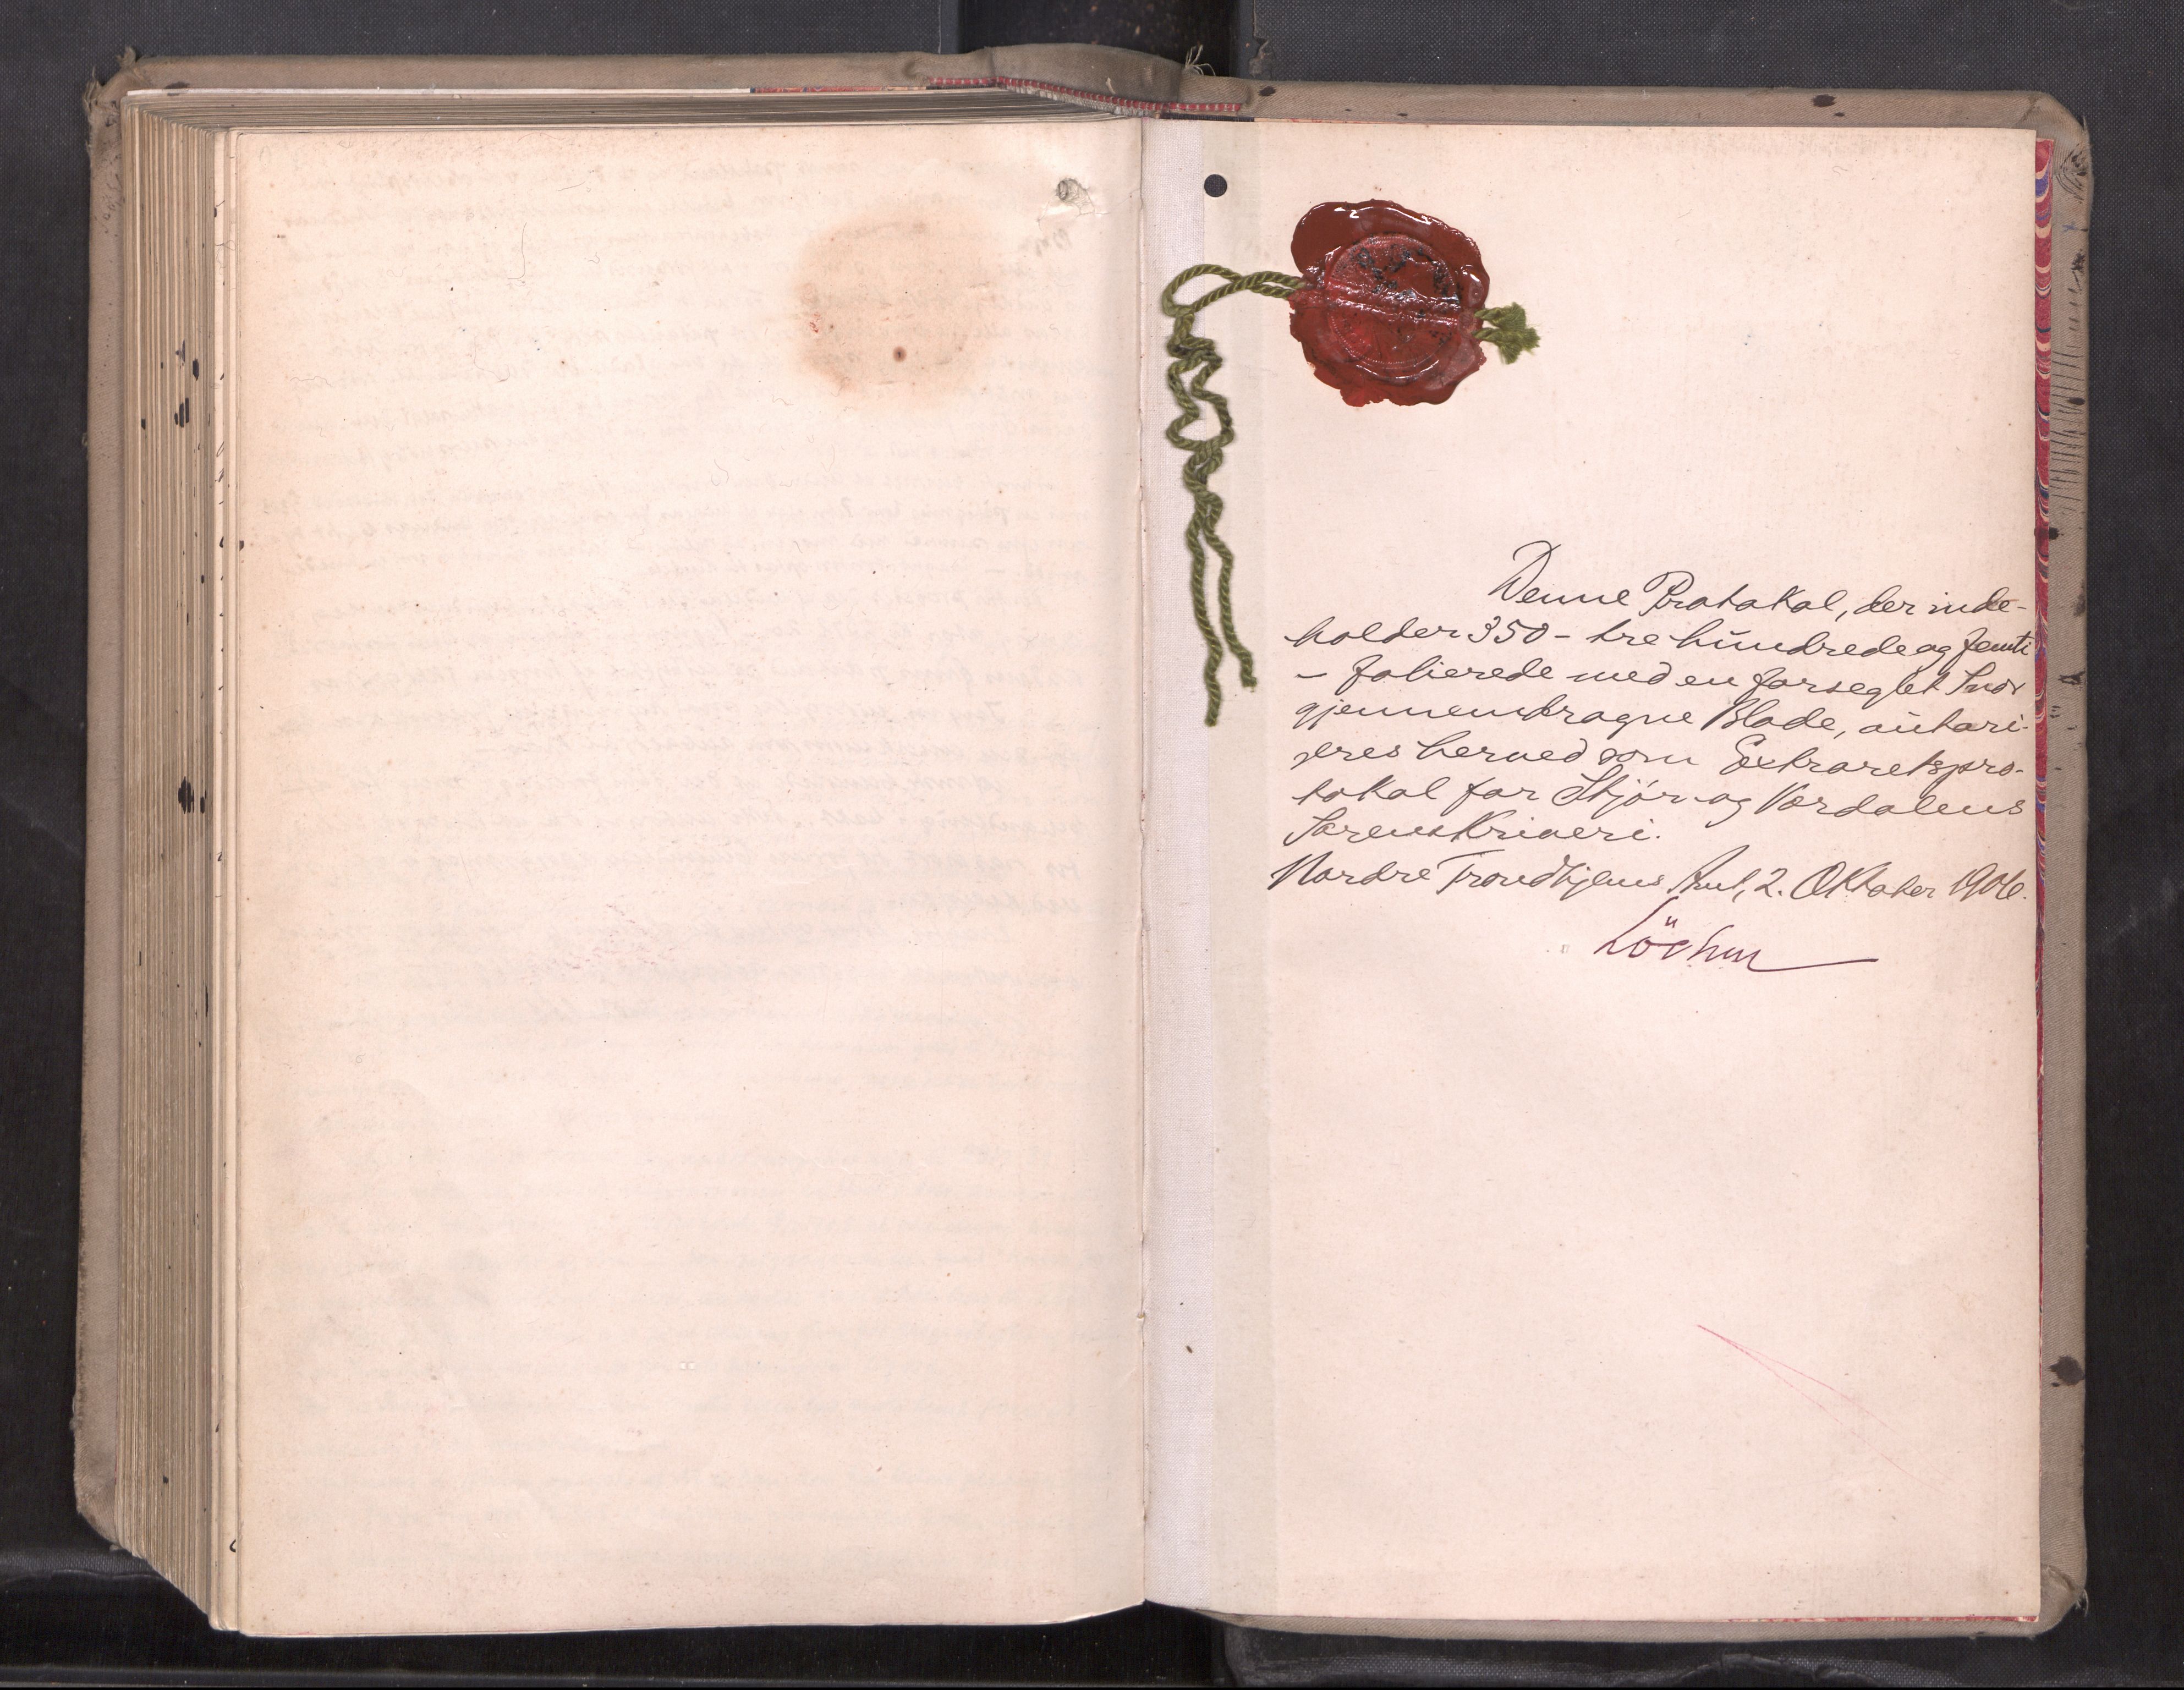 Denne Protokol, der inde-
holder 350 - tre hundrede og femti
- folierede med en forseglet Snor
gjennemdragne Blade, autori-
seres herved som Extraretspro-
tokol for Stjør- og Værdalens
Sorenskriveri.
Nordre Trondhjems Amt, 2. Oktober 1906.
Löchen